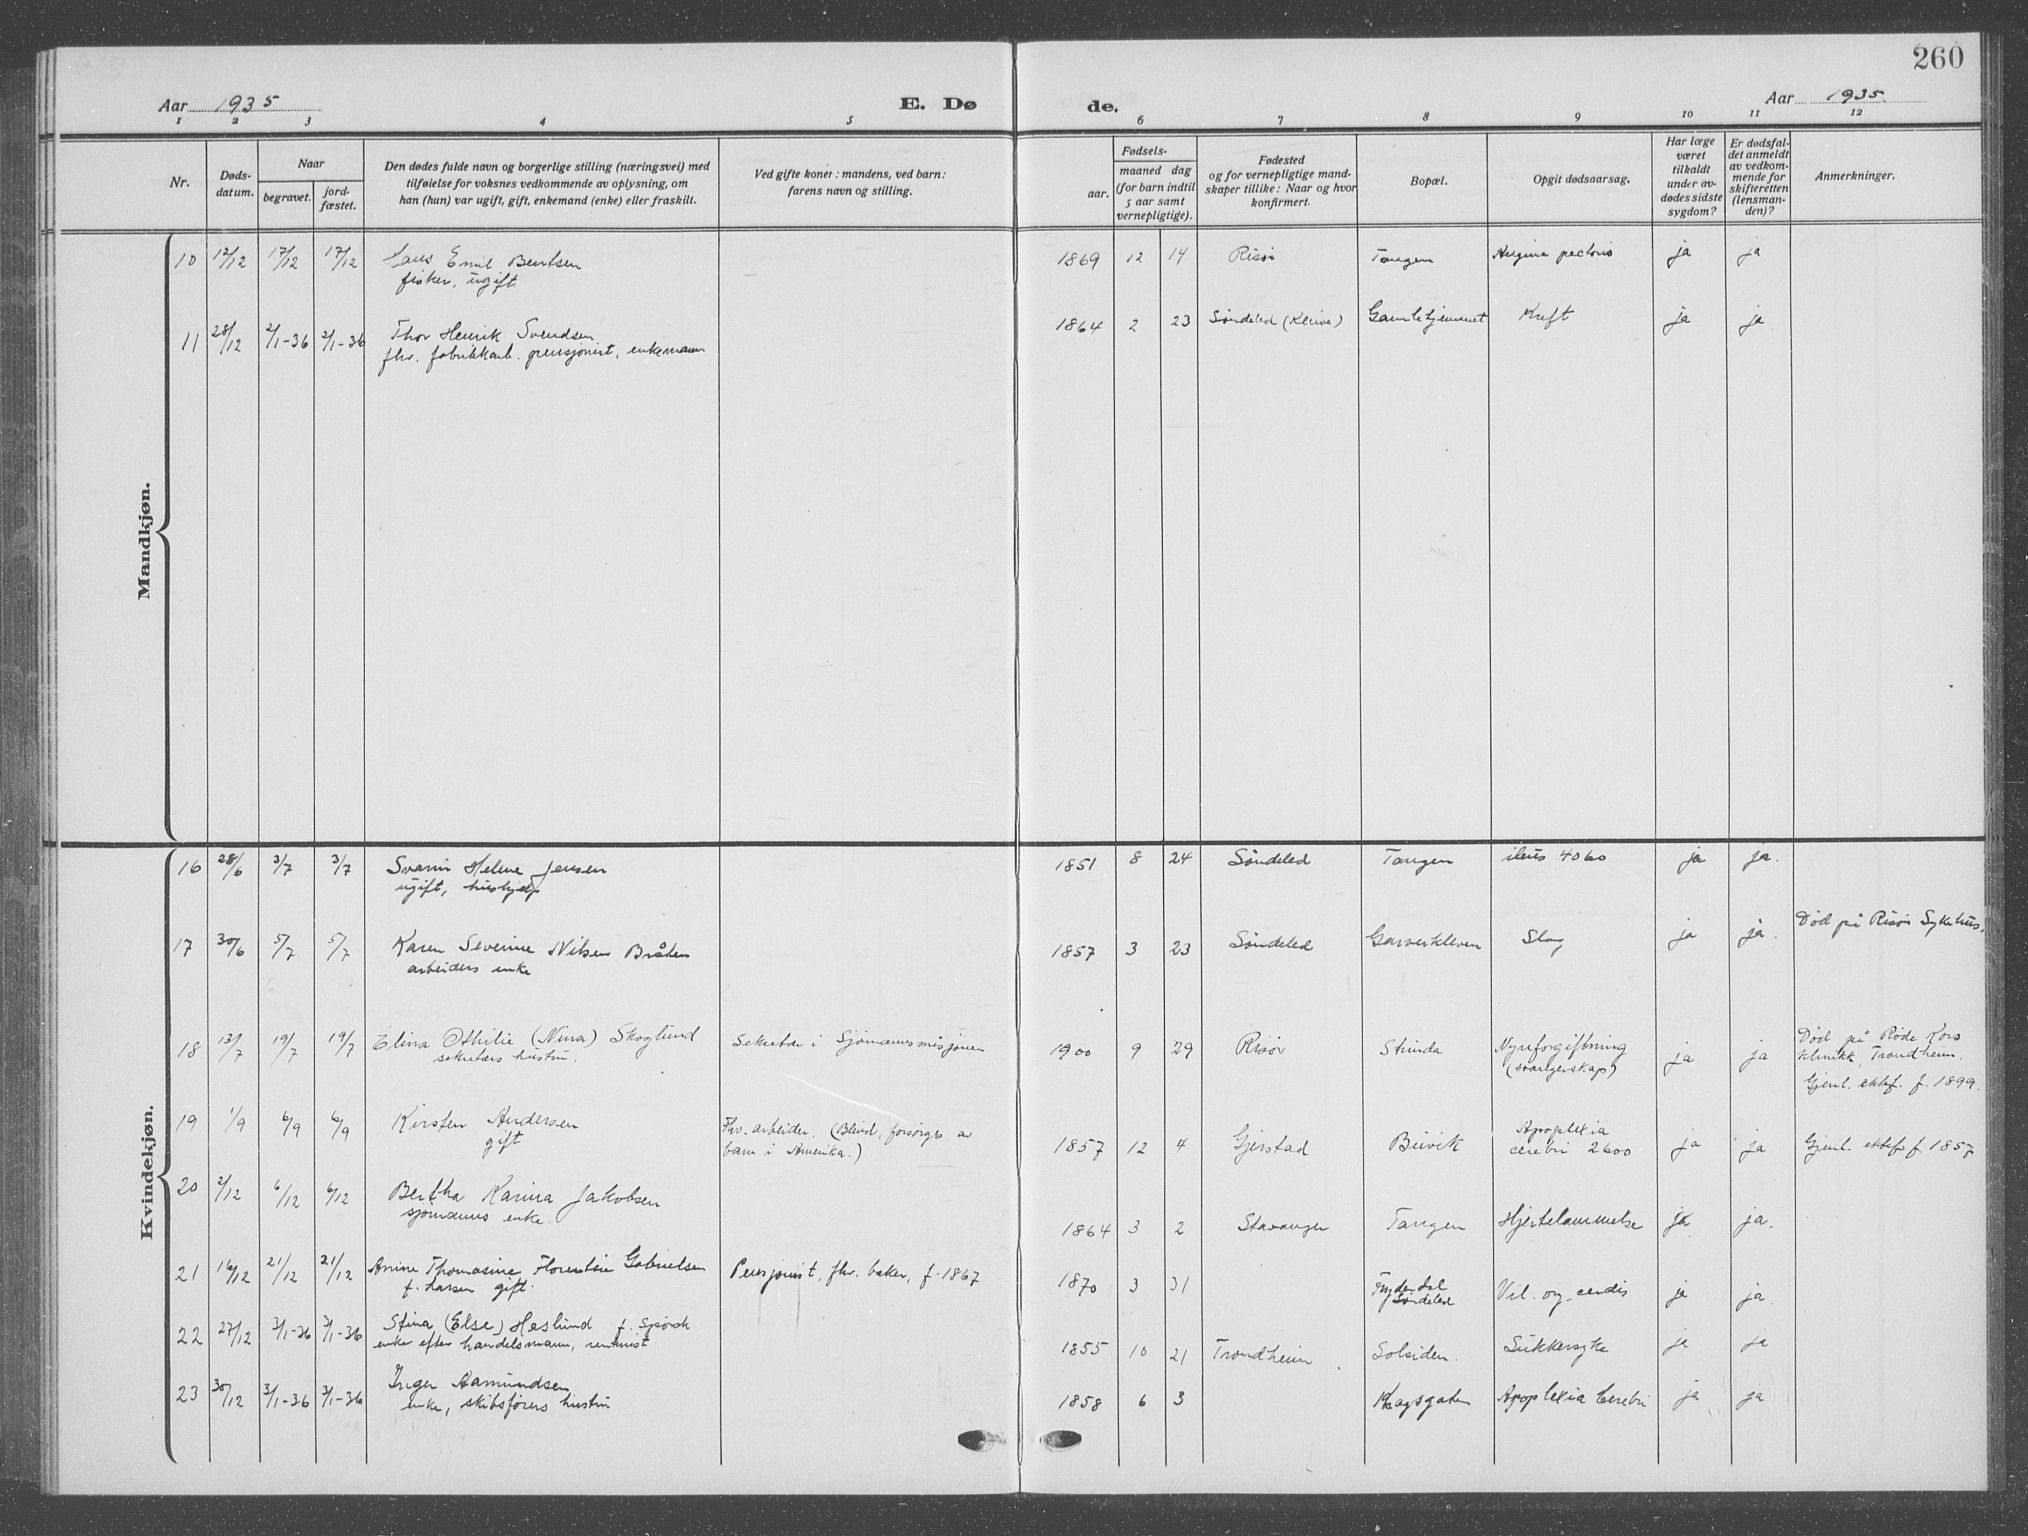 260
Aar 1935
E. Dø
de.
Aar 1935.
1 2 3 4 5 6 7 8 9 10 11 12
Nr.
Døds-
datum.
Naar
begravet.
jord-
fæstet.
Den dødes fulde navn og borgerlige stilling (næringsvei) med
tilføielse for voksnes vedkommende av oplysning, om
han (hun) var ugift, gift, enkemand (enke) eller fraskilt.
Ved gifte koner: mandens, ved barn:
farens navn og stilling.
Fødsels-
aar.
maaned dag
(for barn indtil
5 aar samt
vernepligtige).
Fødested
og for vernepligtige mand-
skaper tillike: Naar og hvor
konfirmert.
Bopæl.
Opgit dødsaarsag.
Har læge
været
tilkaldt
under av-
dødes sidste
sygdom?
Er dødsfal-
det anmeldt
av vedkom-
mende for
skifteretten
(lensman-
den)?
Anmerkninger.
Mandkjøn.
10 12/12 17/12 17/12 Hans Emil Bentsen 1869 12 14 Risør Tangen Angina pectoris ja ja
fisker, ugift
11 28/12 2/1-36 2/1-36 Thor Henrik Svendsen 1864 2 23 Søndeled Gamlehjemmet Kreft ja ja
fhv. fabrikkarb. pensjonist, enkemann
Kvindekjøn.
16 28/6 3/7 3/7 Helene Jensen 1851 8 24 Søndeled Tangen ileus 4060 ja ja.
ugift, hushjelp
17 30/6 5/7 5/7 Karen Severine Nilsen Bråten 1857 3 23 Søndeled Garverkleven Slag ja ja. Død på Risør Sykehus.
arbeiders enke
18 13/7 19/7 19/7 Elina Othilie (Nina) Skoglund Sekretær i Sjømannsmisjonen 1900 9 29 Risør Strinda Nyreforgiftning ja ja Død på Røde Kors
sekretærs hustru. (svangerskap) klinikk, Trondheim.
Gjenl. ektef. f. 1899.
19 1/9 6/9 6/9 Kirsten Andersen Fhv. arbeider. (Blind, forsørges av 1857 12 4 Gjerstad Buvik Apoplexia ja ja Gjenl. ektef. f. 1857
gift barn i Amerika.) cerebri 2600
20 2/12 6/12 6/12 Bertha Karina Jakobsen 1864 3 2 Stavanger Tangen Hjertelammelse ja ja.
sjømanns enke.
21 16/12 21/12 21/12 Anine Thomasine Florentine Gabrielsen Pensjonist, fhv. baker, f. 1867 1870 3 31 Vit. org. cordis ja ja.
f. Larsen gift. Søndeled
22 27/12 3/1-36 3/1-36 Stina (Else) Heslund f. 1855 10 21 Trondheim Solsiden. Sukkersyke ja ja
enke efter handelsmann, rentenist
23 30/12 3/1-36 3/1-36 Inger Aamundsen 1858 6 3 Kragsgaten Apoplexia Cerebri ja ja
enke, skibsførers hustru